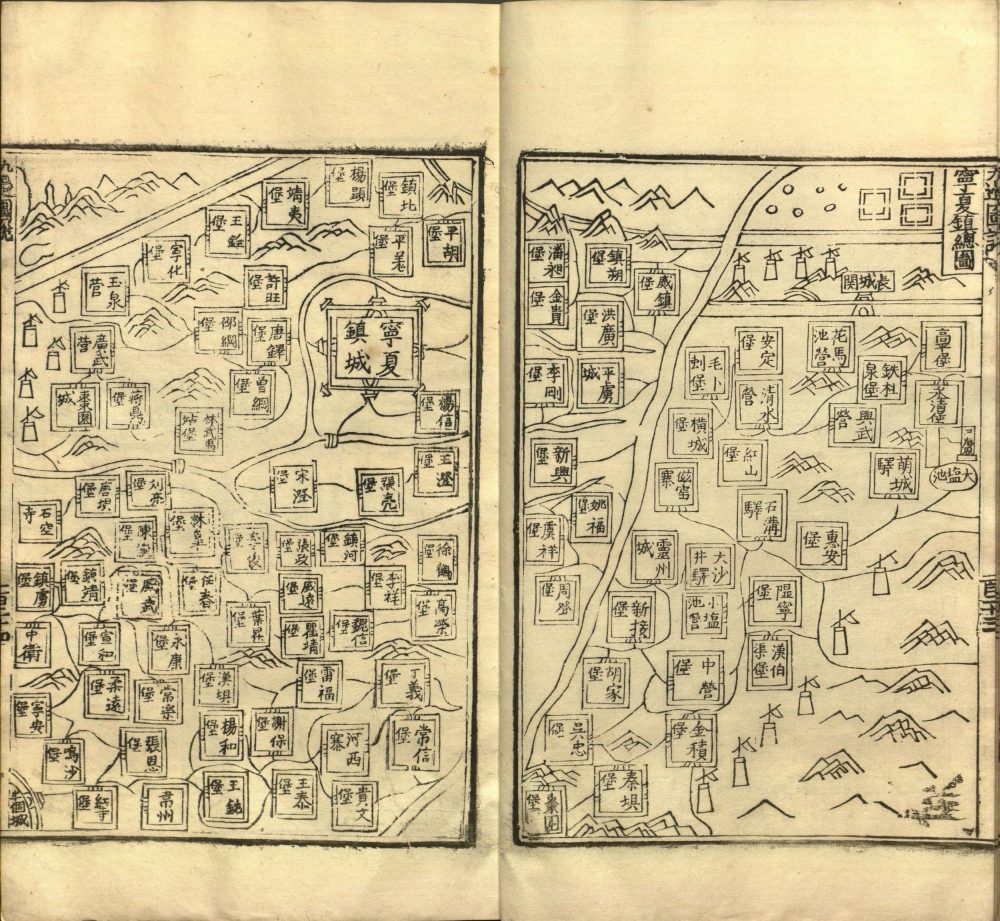 寧夏鎮總圖
長城関
高平堡
鉄柱泉堡
花馬池營
安定堡
毛卜剌堡
清水營
興武營
萌城驛
大塩池
橫城
紅山堡
石溝驛
惠安堡
靈州城
大沙井驛
小塩池營
隰寧堡
漢伯渠堡
新接堡
中營堡
胡家堡
金積堡
吳忠堡
秦垻堡
棗園堡
威鎮堡
鎮朔堡
潘昶堡
金貴堡
洪廣堡
平虜城
李剛堡
新興堡
姚福堡
虞祥堡
周澄堡
鎮北堡
平胡堡
楊顯堡
平羌堡
靖夷堡
王鋐堡
寧化堡
玉泉營
許旺堡
唐鐸堡
邵綱堡
曾綱堡
寧夏鎮城
廣武營
棗園城
蔣鼎堡
楊信堡
王澄堡
宋澄堡
張亮堡
唐垻堡
石空寺
陳家堡
林皋堡
張政堡
鎮河堡
李祥堡
高榮堡
鎮虜堡
鎮靖堡
威武堡
任春堡
威遠堡
葉昇堡
瞿靖堡
魏信堡
中衛
宣和堡
永康堡
柔遠堡
常樂堡
漢垻堡
雷福堡
丁義堡
寧安堡
鳴沙堡
張恩堡
楊和堡
謝保堡
河西寨
常信堡
紅寺堡
韋州
王鋐堡
王泰堡
貴文堡
半個城